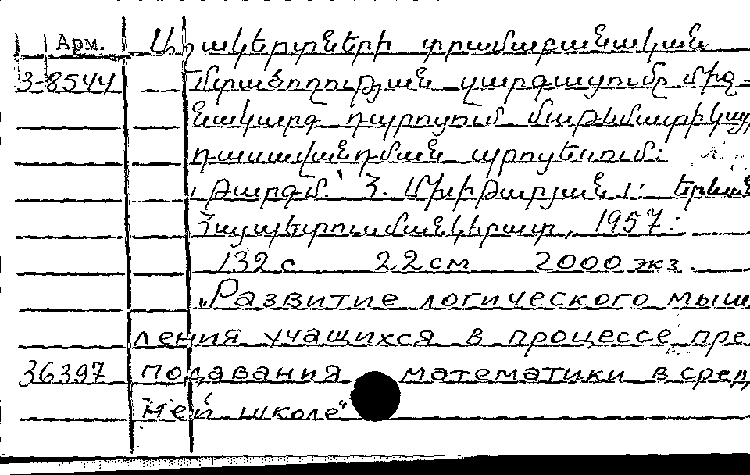 Арм. Աշակերտների տրամաբանական
3-8544 մտածողության զարգացումը միջ-
նակարգ դպրոցում մաթեմատիկայ
դասավանդման պրոցեսում:
Թարգմ.՝ Հ. Մխիթարյան: Երևան
Հայպետուսմանկհրատ, 1957:
132 с 22 см 2000 экз.
„Развитие логического мыш
ления учащихся в процессе пре
36397 подавания математики в сред
ней школе“